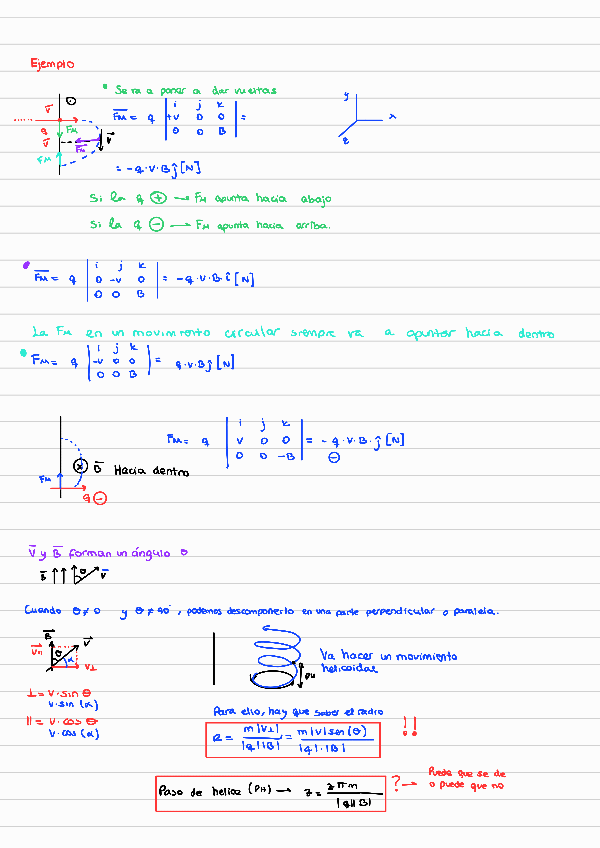 Ejemplo
Se va a poner a dar vueltas
F̅M̅ = q | i j k | +v 0 0 | 0 0 B | =
= -q·v·B ĵ [N]
y
x
z
v̅
q
FM
v̅
FM
FM
v̅
Si la q ⊕ → FM apunta hacia abajo
Si la q ⊖ → FM apunta hacia arriba.
F̅M̅ = q | i j k | 0 -v 0 | 0 0 B | = -q·v·B·î [N]
La FM en un movimiento circular siempre va a apuntar hacia dentro
F̅M = q | i j k | -v 0 0 | 0 0 B | = q·v·B ĵ [N]
FM = q | i j k | v 0 0 | 0 0 -B | = -q·v·B·ĵ [N]
⊖
⊗ B̅ Hacia dentro
FM
q ⊖
V̅ y B̅ forman un ángulo θ
B̅ θ v̅
Cuando θ≠0 y θ≠90°, podemos descomponerlo en una parte perpendicular o paralela.
B̅
v̅
θ
α
v⊥
PH
Va hacer un movimiento
helicoidal
⊥ = v·sin θ
v·sin (α)
|| = v·cos θ
v·cos (α)
Para ello, hay que saber el radio
R = m|v⊥| / |q||B| = m|v|sen(θ) / |q|·|B| !!
Paso de helice (PH) → z = 2πm / |q||B|
? → Puede que se de
o puede que no